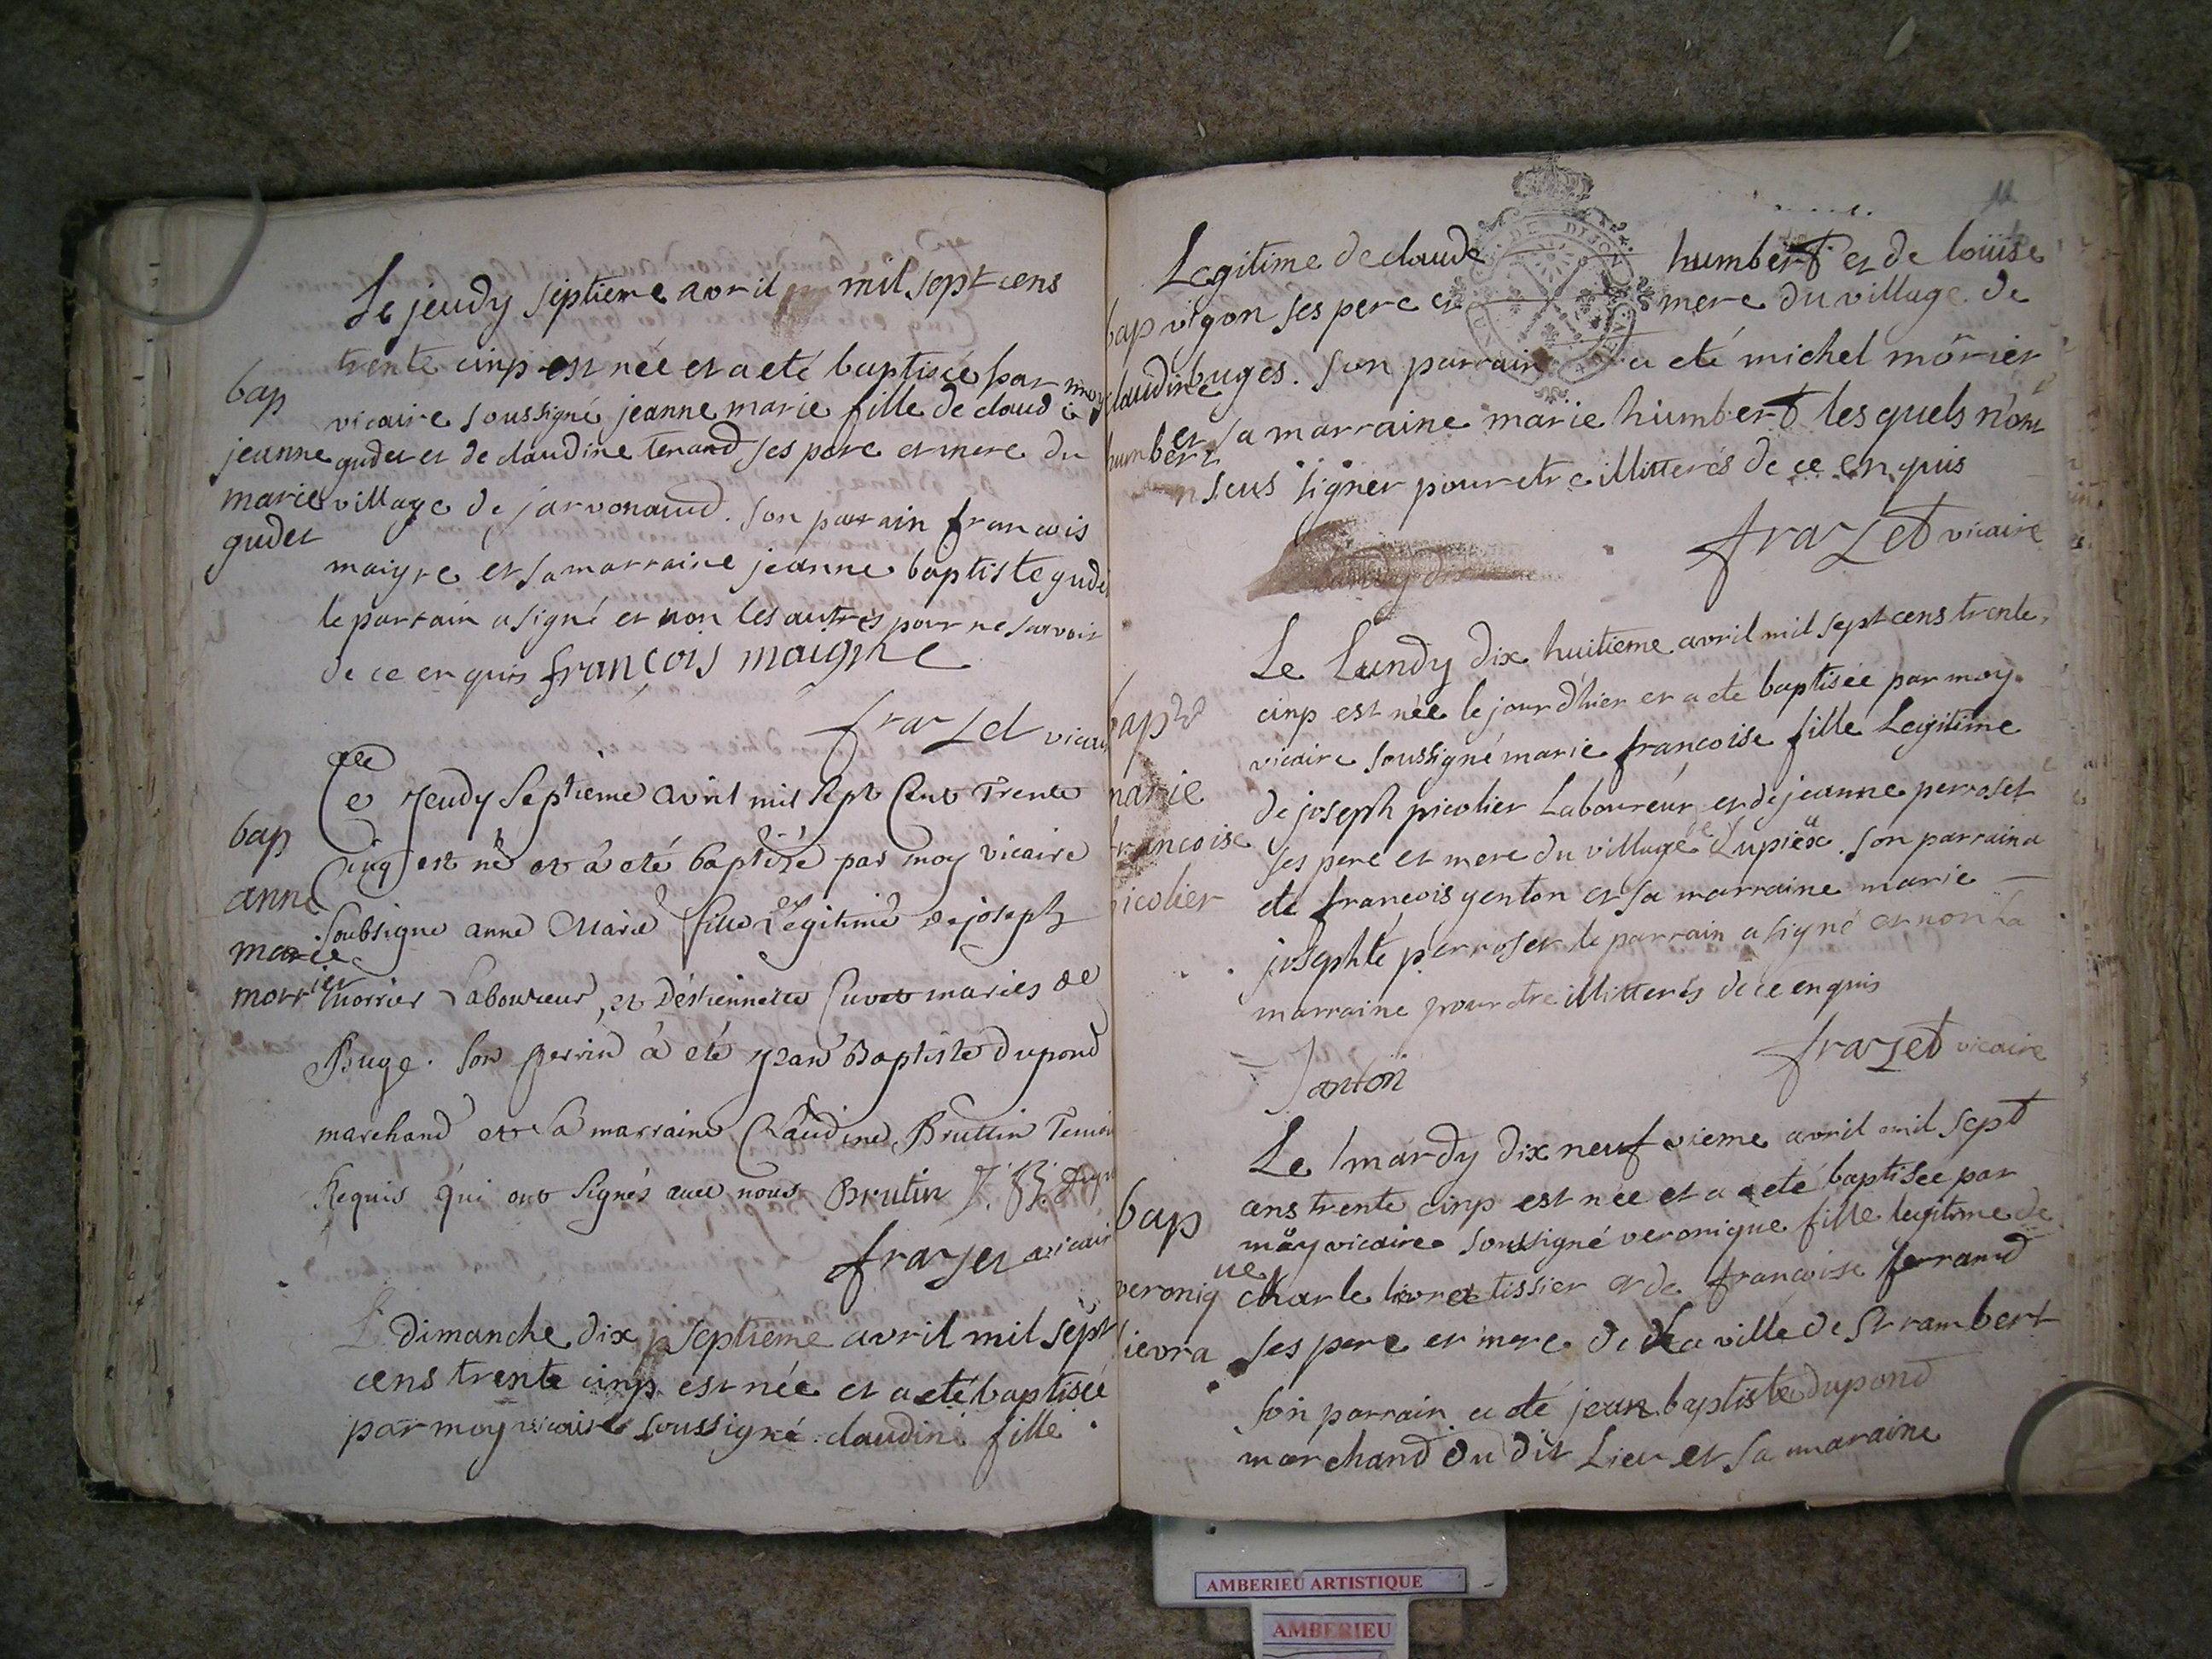 Le jeudy septieme avril mil sept cens
trente cinp est née et a eté baptisée par moy
bap
vicaire soussigné jeanne marie fille de claude
jeanne
gudet et de claudine tenand ses pere et mere du
marie
village de jarvonaud. son parrain francois
gudet
maigre et sa marraine jeanne baptiste gude
le parrain a signé et non les autres pour ne scavoir
de ce enquis françois maigre
frazet vicai
Le Jeudy Septieme avril mil Sept Cent Trente
bap
Cinq est né et à eté baptizé par moy vicaire
anne
Soubsigné anne Marie fille Legitime de joseph
marie
morrier
morrier Laboureur, et D'éstiennette Cuvet mariés de
Buge. son perrin à eté jean Baptiste dupond
marchand et Sa marraine Claudine Bruttin
Requis qui ont signés avec nous Brutin
frazet vicair
dimanche dix septieme avril mil sept
cens trente cinp est née et a eté baptisée
par moy vicaire soussigné claudine fille
Legitime de claude humbert et de louise
bap
vigon ses pere et mere du village de
claudine
buges. son parrain a eté michel morier
humbert
et sa marraine marie humbert les quels n'ont
sceus signer pour etre illitterés de ce enquis
frazet vicaire
Le Lundy dix huitieme avril mil sept cens trente
cinp est née le jour d'hier et a eté baptisée par moy
bap
vicaire soussigné marie francoise fille Legitime
marie
de joseph picolier Laboureur et de jeanne perroset
francoise
ses pere et mere du village de Lupieu. son parrain a
picolier
eté francois genton et sa marraine marie
josephte perroset le parrain a signé et non la
marraine pour etre illitterés de ce enquis
frazet vicaire
Janton
Le mardy dix neufvieme avril mil sept
cens trente cinp est née et a eté baptisée par
bap
moy vicaire soussigné veronique fille legitime de
veronique
charle livra tissier et de francoise ferrand
lievra
ses pere et mere de la ville de St rambert
son parrain a eté jean baptiste dupond
marchand du dit Lieu et sa maraine
AMBERIEU ARTISTIQUE
AMBERIEU